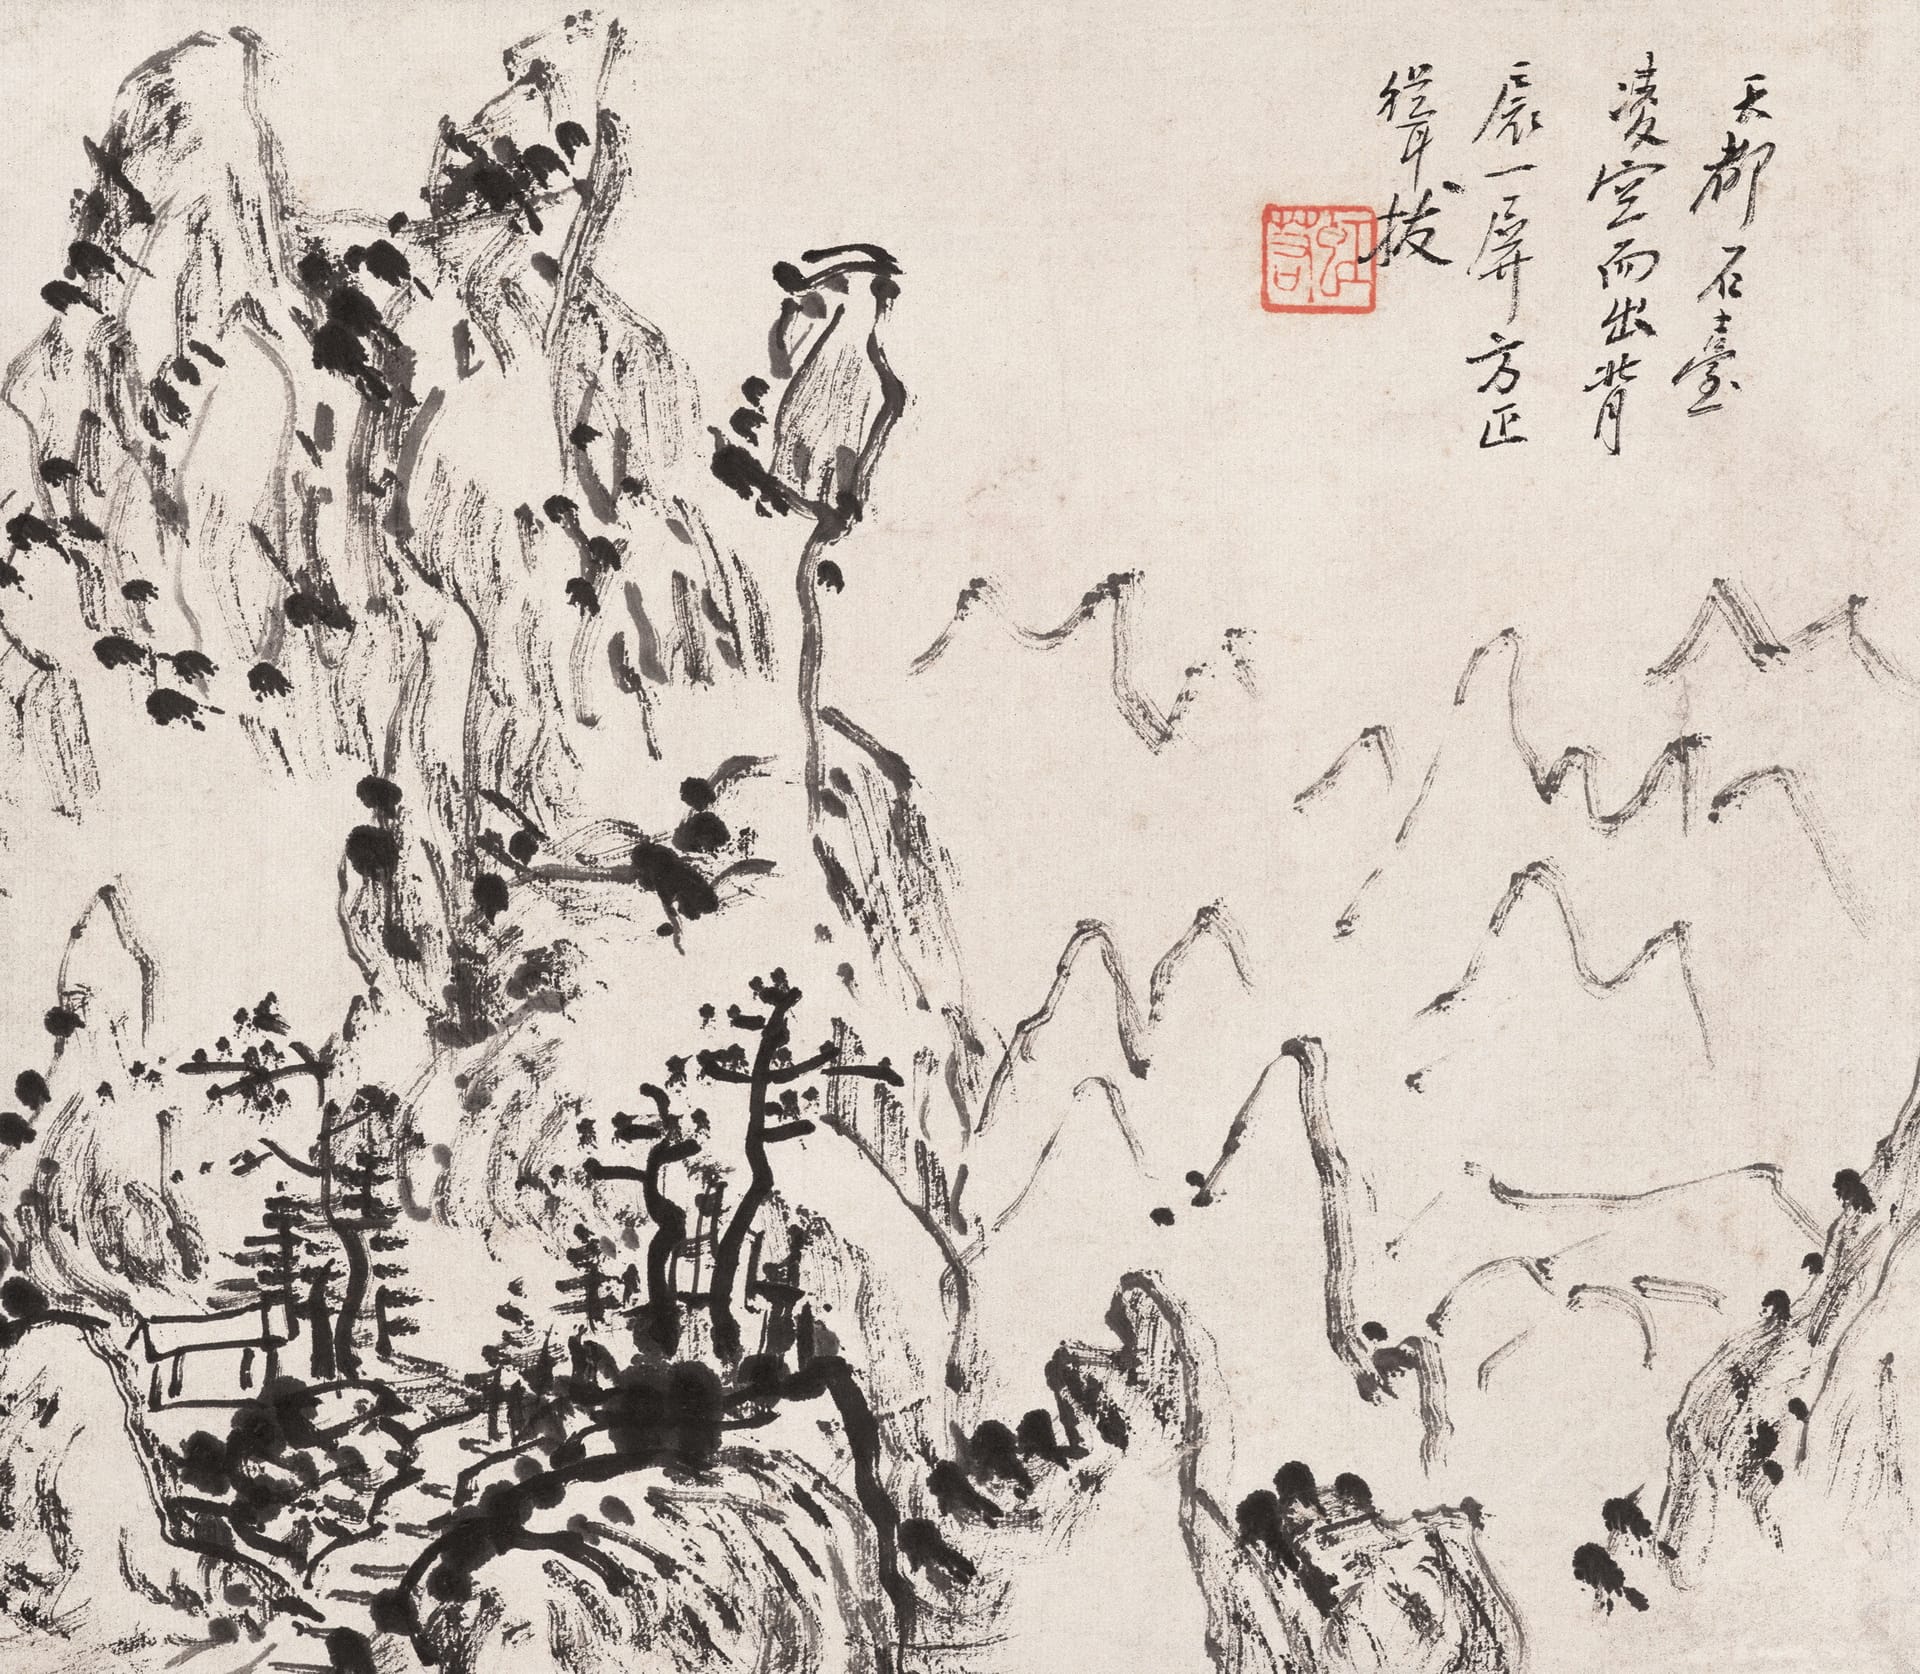 天都石臺
凌空而出背
扆一屏方正
聳拔
虹若